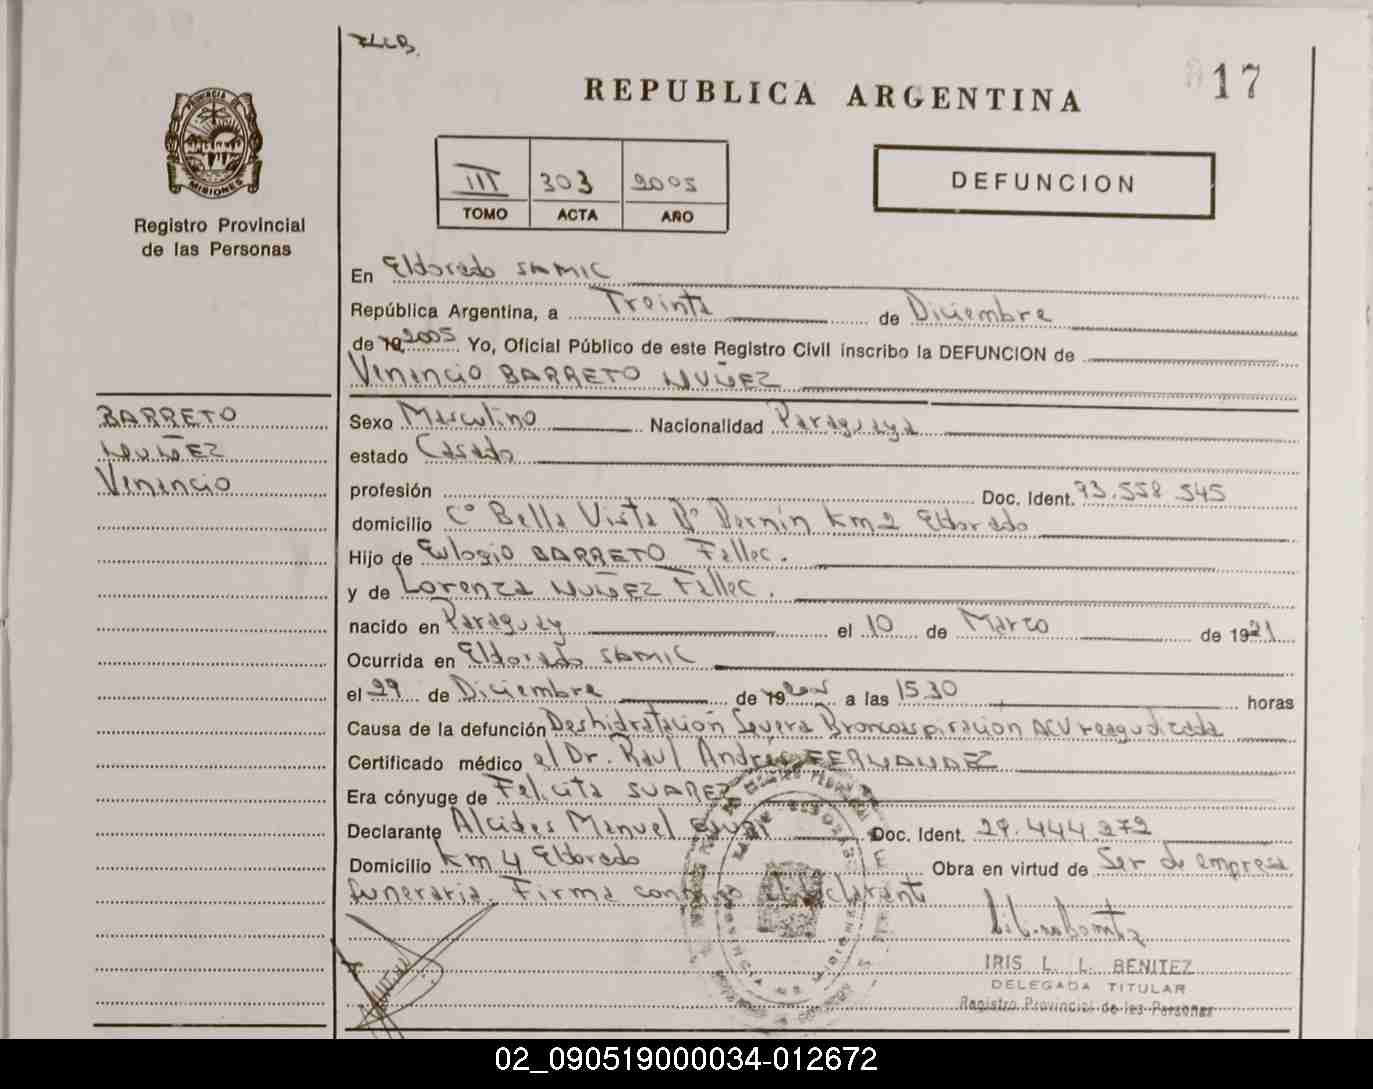 17
REPUBLICA ARGENTINA
PROVINCIA DE
MISIONES
Registro Provincial
de las Personas
III 303 2005
TOMO ACTA AÑO
DEFUNCION
En Eldorado SAMIC
República Argentina, a Treinta de Diciembre
de 19 2005 Yo, Oficial Público de este Registro Civil inscribo la DEFUNCION de
Venencio BARRETO NUÑEZ
BARRETO
NUÑEZ
Venencio
Sexo Masculino Nacionalidad Paraguaya
estado Casado
profesión Doc. Ident. 93.558.545
domicilio Cº Bella Vista Bº Pernín km 2 Eldorado
Hijo de Eulogio BARRETO Fallec.
y de Lorenza NUÑEZ Fallec.
nacido en Paraguay el 10 de Marzo de 1921
Ocurrida en Eldorado SAMIC
el 29 de Diciembre de 19 2005 a las 15.30 horas
Causa de la defunción Deshidratación Severa Broncoaspiracion ACV reagudizada
Certificado médico el Dr. Raul Andrés FERNANDEZ
Era cónyuge de Felicita SUAREZ
Declarante Alcides Manuel Doc. Ident. 29.444.272
Domicilio km 4 Eldorado Obra en virtud de Ser de empresa
funeraria. Firma conmigo el declarante
IRIS L. L. BENITEZ
DELEGADA TITULAR
Registro Provincial de las Personas
02_090519000034-012672